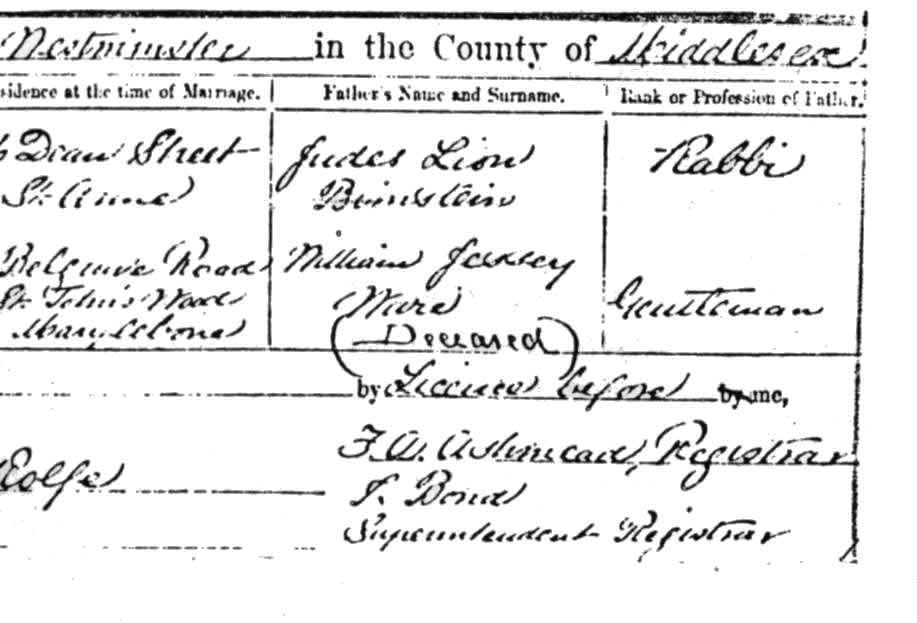 Westminster in the County of Middlesex
sidence at the time of Marriage. Father's Name and Surname. Rank or Profession of Father.
Dean Street Judes Lion Rabbi
St. Anne Birnstein
Belgrave Road William Jersey
St. John's Wood Ware Gentleman
Marylebone (Deceased)
by Licence before by me,
F. W. Registrar
Rolfe J. Bond
Superintendent Registrar